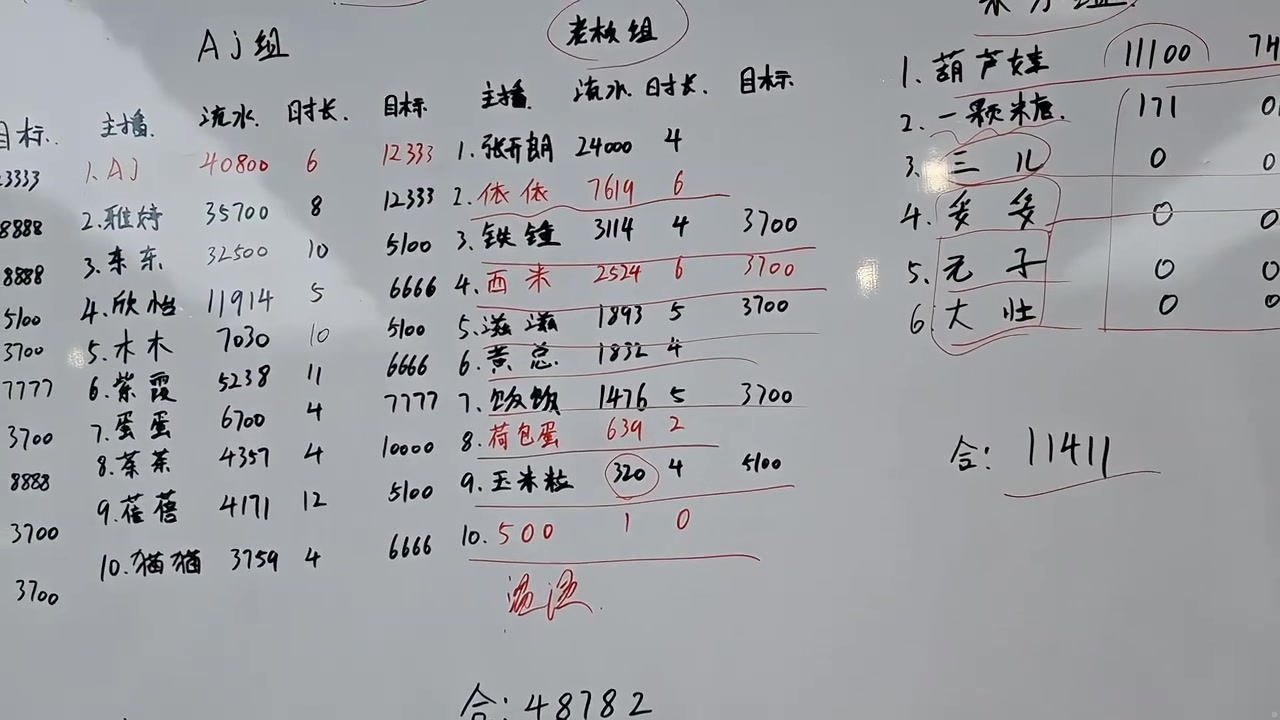 目标.
3333
8888
8888
5100
3700
7777
3700
8888
3700
3700
Aj组
主播. 流水. 时长. 目标
1.AJ 40800 6 12333
2.雅婷 35700 8 12333
3.东东 32500 10 5100
4.欣怡 11914 5 6666
5.木木 7030 10 5100
6.紫霞 5238 11 6666
7.蛋蛋 6700 4 7777
8.茶茶 4357 4 10000
9.蓓蓓 4171 12 5100
10.猫猫 3759 4 6666
老板组
主播. 流水 时长. 目标
1.张开朗 24000 4
2.依依 7619 6
3.铁锤 3114 4 3700
4.西米 2524 6 3700
5.滋滋 1893 5 3700
6.黄总 1832 4
7.饮饮 1476 5 3700
8.荷包蛋 639 2
9.玉米粒 320 4 5100
10.500 1 0
温温.
合:48782
1.葫芦娃 11100 74
2.一颗米糖. 171 0
3.三儿 0 0
4.多多 0 0
5.元子 0 0
6 大壮 0 0
合: 11411